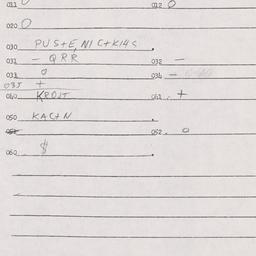 011 0 012 0
020 0
030 PUS+E, NIC+K14S
031 - QRR 032 -
033 0 034 -
035 +
040 KROJT 041 +
050 KAC+N
051 052 0
060 $